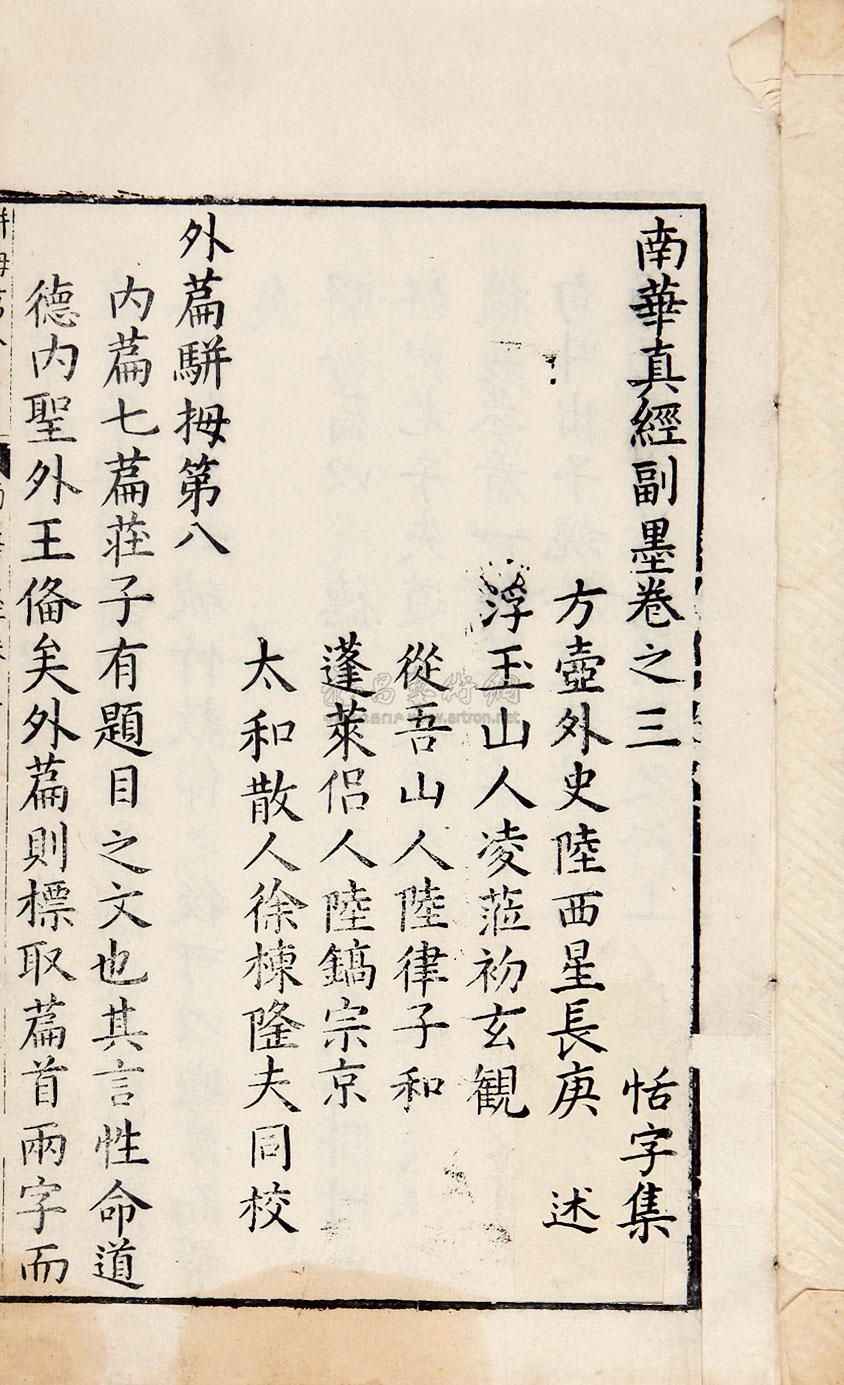 南華真經副墨卷之三 恬字集
方壺外史陸西星長庚 述
浮玉山人凌蒞初玄觀
從吾山人陸律子和
蓬萊侶人陸鎬宗京
太和散人徐棟隆夫同校
外篇駢拇第八
內篇七篇莊子有題目之文也其言性命道
德内聖外王俻矣外篇則標取篇首兩字而
www.artron.net